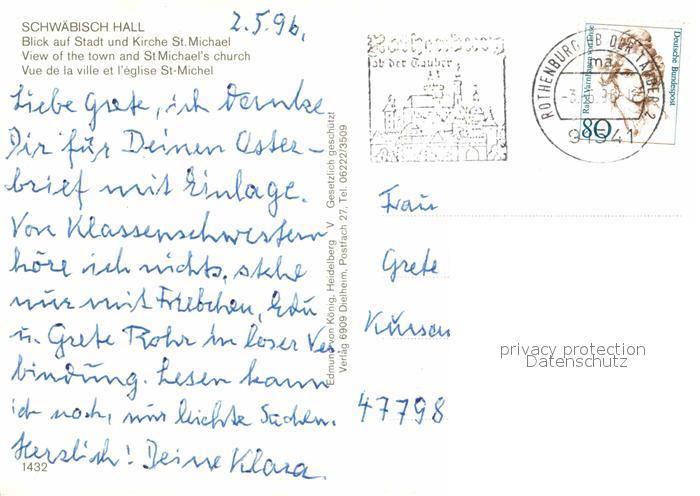 SCHWÄBISCH HALL
Blick auf Stadt und Kirche St. Michael
View of the town and St Michael's church
Vue de la ville et l'église St-Michel
2.5.96,
Liebe Grete, ich danke
Dir für Deinen Oster-
brief mit Einlage.
Von Klassenschwestern
höre ich nichts, stehe
nur mit Friebchen, Edu
u. Grete Rohr in loser Ver
bindung. Lesen kann
ich noch, nur leichte Sachen.
Herzlich! Deine Klara.
1432
Edmund von König, Heidelberg V Gesetzlich geschützt
Verlag 6909 Dielheim, Postfach 27, Tel. 06222/3509
Rothenburg
ob der Tauber
ROTHENBURG OB DER TAUBER 2
91541
Deutsche Bundespost
80
Frau
Grete
47798
privacy protection
Datenschutz